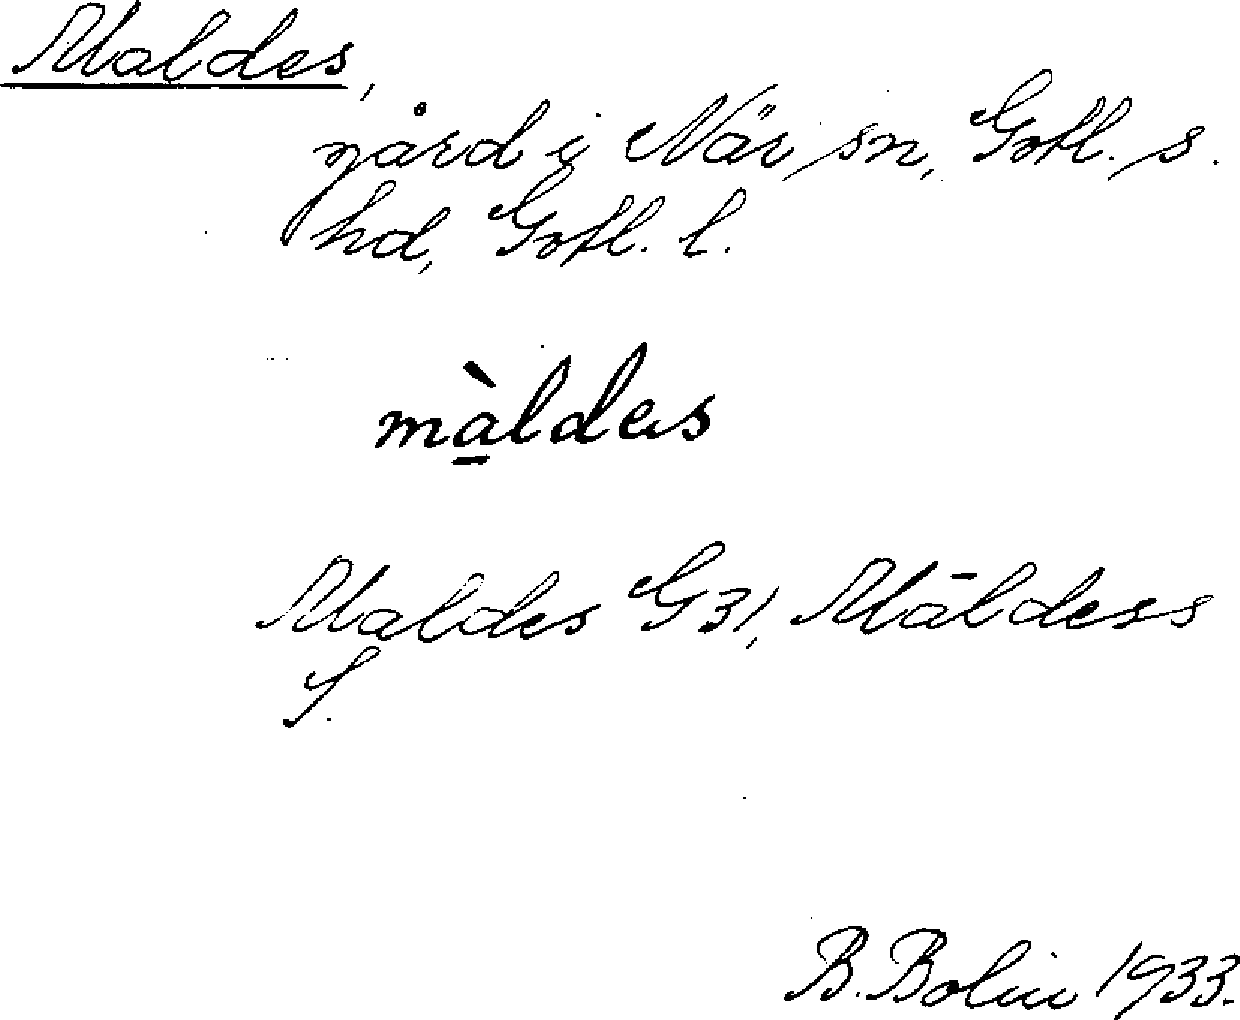 Maldes,
gård i När sn, Gotl. s.
hd, Gotl. l.
màldes
Maldes G31, Māldess
S.
B. Bolin 1933.